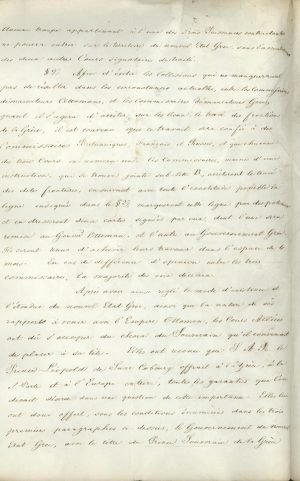 Aucune troupe appartenant à l'une des Trois Puissances contractantes
ne pourra entrer sur le territoire du nouvel Etat Grec, sans l'assentiment
des deux autres Cours signataires du traité.
§ 9. Afin d'éviter les Collisions qui ne manqueraient
pas de résulter dans les circonstances actuelles, entre les Commissaires
démarcateurs Ottomans, et les Commissaires démarcateurs Grecs,
quand il s'agira d'arrêter, sur les lieux, le tracé des frontières
de la Grèce, il est convenu que ce travail sera confié à des
Commissaires Britanniques, Français et Russes, et que chacune
des trois Cours en nommera un. Ces Commissaires, munis d'une
instruction, qui se trouve jointe sub litt. B, arrêteront le tracé
des dites frontières, en suivant avec toute l'exactitude possible la
ligne indiquée dans le § 2; marqueront cette ligne par des poteaux
et en dresseront deux cartes signées par eux, dont l'une sera
remise au Gouvt Ottoman, et l'autre au Gouvernement Grec.
Ils seront tenus d'achever leurs travaux dans l'espace de
mois. En cas de différence d'opinion entre les trois
commissaires, la majorité des voix décidera.
Après avoir ainsi réglé le mode d'existence et
l'étendue du nouvel Etat Grec, ainsi que la nature de ses
rapports à venir avec l'Empire Ottoman, les Cours Alliées
ont dû s'occuper du choix du Souverain qu'il convenait
de placer à sa tête. Elles ont reconnu que S. A. R. le
Prince Léopold de Saxe Cobourg offrait à la Grèce, à la
Porte et à l'Europe entière, toutes les garanties que l'on
devait désirer dans une question de cette importance. Elles lui
ont donc offert, sous les conditions énoncées dans les trois
premiers paragraphes ci dessus, le Gouvernement du nouvel
Etat Grec, avec le titre de Prince Souverain de la Grèce